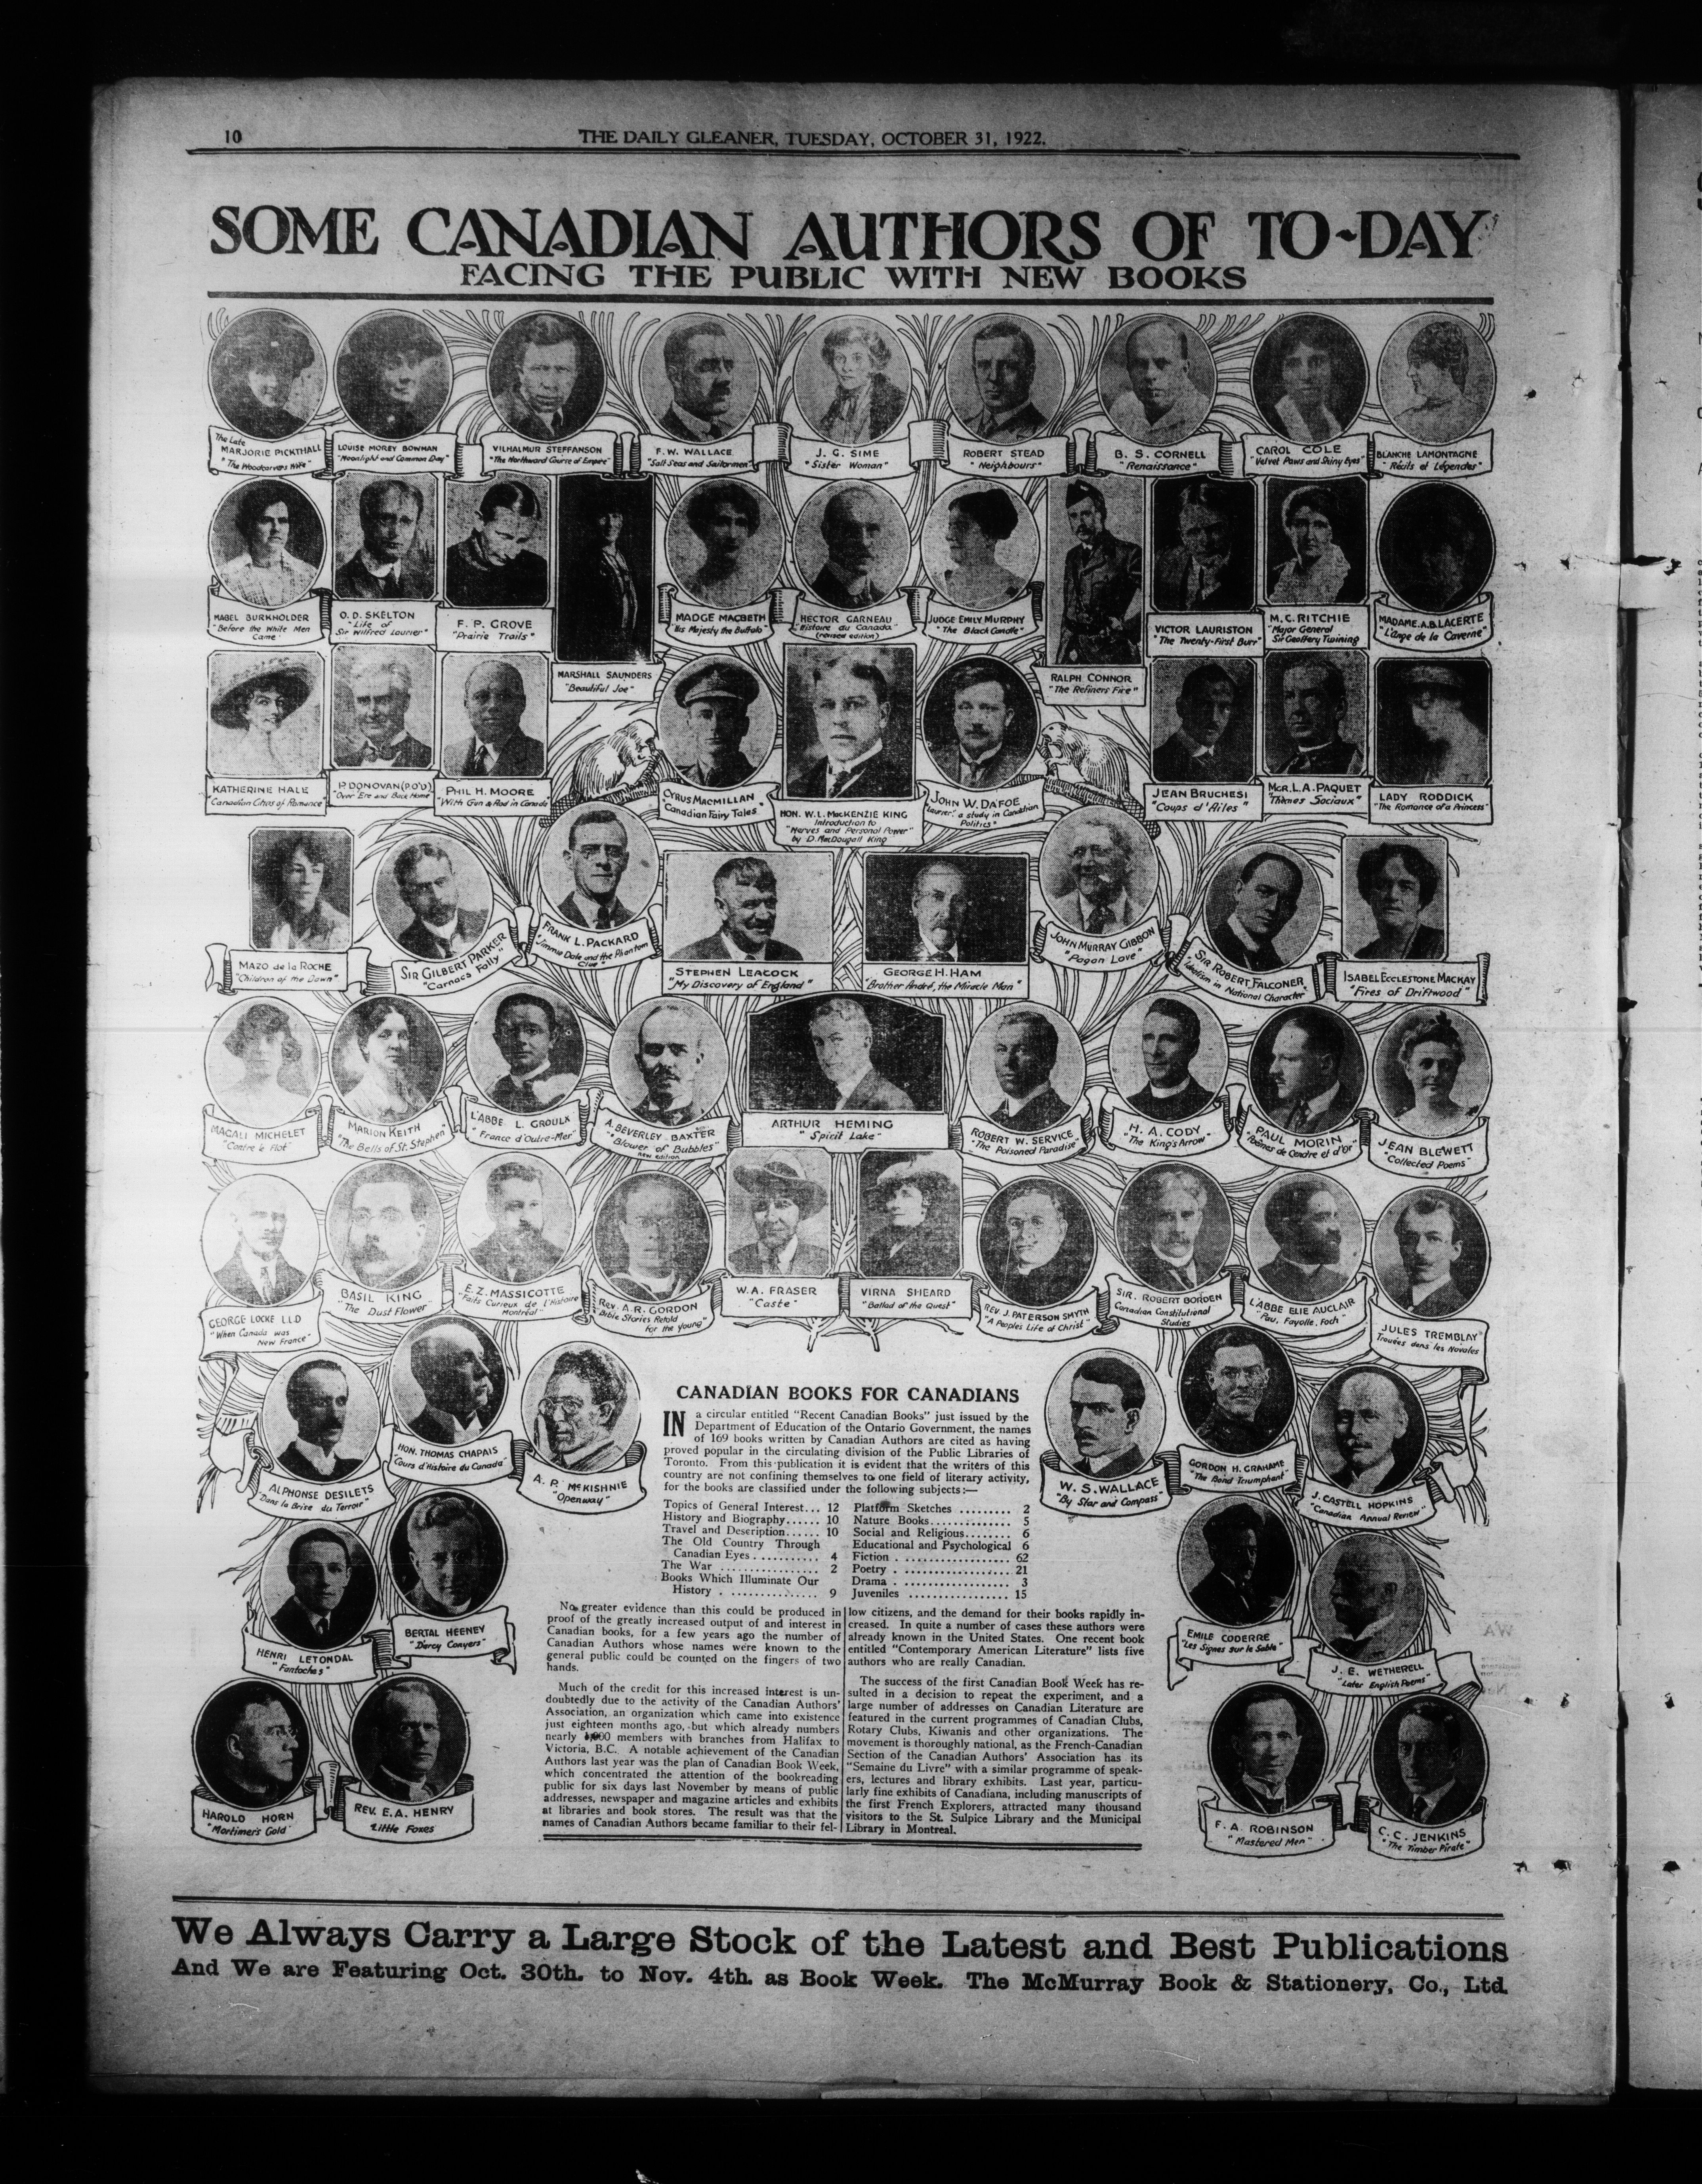 10
THE DAILY GLEANER, TUESDAY, OCTOBER 31, 1922.
SOME CANADIAN AUTHORS OF TO-DAY
FACING THE PUBLIC WITH NEW BOOKS
The Late
MARJORIE PICKTHALL
"The Woodcarvers Wife"
LOUISE MOREY BOWMAN
"Moonlight and Common Day"
VILHALMUR STEFFANSON
"The Northward Course of Empire"
F. W. WALLACE
"Salt Seas and Sailormen"
J. G. SIME
"Sister Woman"
ROBERT STEAD
"Neighbours"
B. S. CORNELL
"Renaissance"
CAROL COLE
"Velvet Paws and Shiny Eyes"
BLANCHE LAMONTAGNE
"Récits et Légendes"
MABEL BURKHOLDER
"Before the White Men
Came"
O. D. SKELTON
"Life of
Sir Wilfred Laurier"
F. P. GROVE
"Prairie Trails"
MARSHALL SAUNDERS
"Beautiful Joe"
MADGE MACBETH
"His Majesty the Buffalo"
HECTOR GARNEAU
"Histoire du Canada"
(revised edition)
JUDGE EMILY MURPHY
"The Black Candle"
RALPH CONNOR
"The Refiners Fire"
VICTOR LAURISTON
"The Twenty-First Burr"
M. C. RITCHIE
"Major General
Sir Geoffery Twining
MADAME. A.B. LACERTE
"L'Ange de la Caverne"
KATHERINE HALE
"Canadian Cities of Romance"
P. DONOVAN (P.O'D)
"Over Ere and Back Home"
PHIL H. MOORE
"With Gun & Rod in Canada"
CYRUS MACMILLAN
"Canadian Fairy Tales"
HON. W. L. MACKENZIE KING
Introduction to
"Nerves and Personal Power"
by D. MacDougall King
JOHN W. DAFOE
"Laurier: a study in Canadian
Politics"
JEAN BRUCHESI
"Coups d'Ailes"
MGR. L. A. PAQUET
"Thèmes Sociaux"
LADY RODDICK
"The Romance of a Princess"
MAZO de la ROCHE
"Children of the Dawn"
SIR GILBERT PARKER
"Carnacs Folly"
FRANK L. PACKARD
"Jimmie Dale and the Phantom
Clue"
STEPHEN LEACOCK
"My Discovery of England"
GEORGE H. HAM
"Brother André, the Miracle Man"
JOHN MURRAY GIBBON
"Pagan Love"
SIR ROBERT FALCONER
"Idealism in National Character"
ISABEL ECCLESTONE MACKAY
"Fires of Driftwood"
MAGALI MICHELET
"Contre le Flot"
MARION KEITH
"The Bells of St. Stephen"
L'ABBE L. GROULX
"France d'Outre-Mer"
A. BEVERLEY BAXTER
"Blower of Bubbles"
new edition
ARTHUR HEMING
"Spirit Lake"
ROBERT W. SERVICE
"The Poisoned Paradise"
H. A. CODY
"The King's Arrow"
PAUL MORIN
"Poèmes de Cendre et d'Or"
JEAN BLEWETT
"Collected Poems"
GEORGE LOCKE LLD
"When Canada was
New France"
BASIL KING
"The Dust Flower"
E. Z. MASSICOTTE
"Faits Curieux de l'Histoire
Montréal"
REV. A. R. GORDON
"Bible Stories Retold
for the Young"
W. A. FRASER
"Caste"
VIRNA SHEARD
"Ballad of the Quest"
REV. J. PATERSON SMYTH
"A Peoples Life of Christ"
SIR. ROBERT BORDEN
Canadian Constitutional
Studies
L'ABBE ELIE AUCLAIR
"Pau, Fayolle, Foch"
JULES TREMBLAY
Trouées dans les Novales
ALPHONSE DESILETS
"Dans la Brise du Terroir"
HON. THOMAS CHAPAIS
"Cours d'Histoire du Canada"
A. P. McKISHNIE
"Openway"
W. S. WALLACE
"By Star and Compass"
GORDON H. GRAHAME
"The Bond Triumphant"
J. CASTELL HOPKINS
"Canadian Annual Review"
HENRI LETONDAL
"Fantoches"
BERTAL HEENEY
"D'arcy Conyers"
EMILE CODERRE
"Les Signes sur le Sable"
J. E. WETHERELL
"Later English Poems"
HAROLD HORN
"Mortimer's Gold"
REV. E. A. HENRY
Little Foxes
F. A. ROBINSON
"Mastered Men"
C. C. JENKINS
"The Timber Pirate"
CANADIAN BOOKS FOR CANADIANS
IN a circular entitled "Recent Canadian Books" just issued by the
Department of Education of the Ontario Government, the names
of 169 books written by Canadian Authors are cited as having
proved popular in the circulating division of the Public Libraries of
Toronto. From this publication it is evident that the writers of this
country are not confining themselves to one field of literary activity,
for the books are classified under the following subjects:—
Topics of General Interest... 12
History and Biography...... 10
Travel and Description...... 10
The Old Country Through
Canadian Eyes ........... 4
The War ................ 2
Books Which Illuminate Our
History . .............. 9
Platform Sketches ......... 2
Nature Books.............. 5
Social and Religious........ 6
Educational and Psychological 6
Fiction . .................. 62
Poetry . .................. 21
Drama . .................. 3
Juveniles ................. 15
No greater evidence than this could be produced in
proof of the greatly increased output of and interest in
Canadian books, for a few years ago the number of
Canadian Authors whose names were known to the
general public could be counted on the fingers of two
hands.
Much of the credit for this increased interest is un-
doubtedly due to the activity of the Canadian Authors'
Association, an organization which came into existence
just eighteen months ago, but which already numbers
nearly members with branches from Halifax to
Victoria, B.C. A notable achievement of the Canadian
Authors last year was the plan of Canadian Book Week,
which concentrated the attention of the bookreading
public for six days last November by means of public
addresses, newspaper and magazine articles and exhibits
at libraries and book stores. The result was that the
names of Canadian Authors became familiar to their fel-
low citizens, and the demand for their books rapidly in-
creased. In quite a number of cases these authors were
already known in the United States. One recent book
entitled "Contemporary American Literature" lists five
authors who are really Canadian.
The success of the first Canadian Book Week has re-
sulted in a decision to repeat the experiment, and a
large number of addresses on Canadian Literature are
featured in the current programmes of Canadian Clubs,
Rotary Clubs, Kiwanis and other organizations. The
movement is thoroughly national, as the French-Canadian
Section of the Canadian Authors' Association has its
"Semaine du Livre" with a similar programme of speak-
ers, lectures and library exhibits. Last year, particu-
larly fine exhibits of Canadiana, including manuscripts of
the first French Explorers, attracted many thousand
visitors to the St. Sulpice Library and the Municipal
Library in Montreal.
We Always Carry a Large Stock of the Latest and Best Publications
And We are Featuring Oct. 30th. to Nov. 4th. as Book Week. The McMurray Book & Stationery, Co., Ltd.